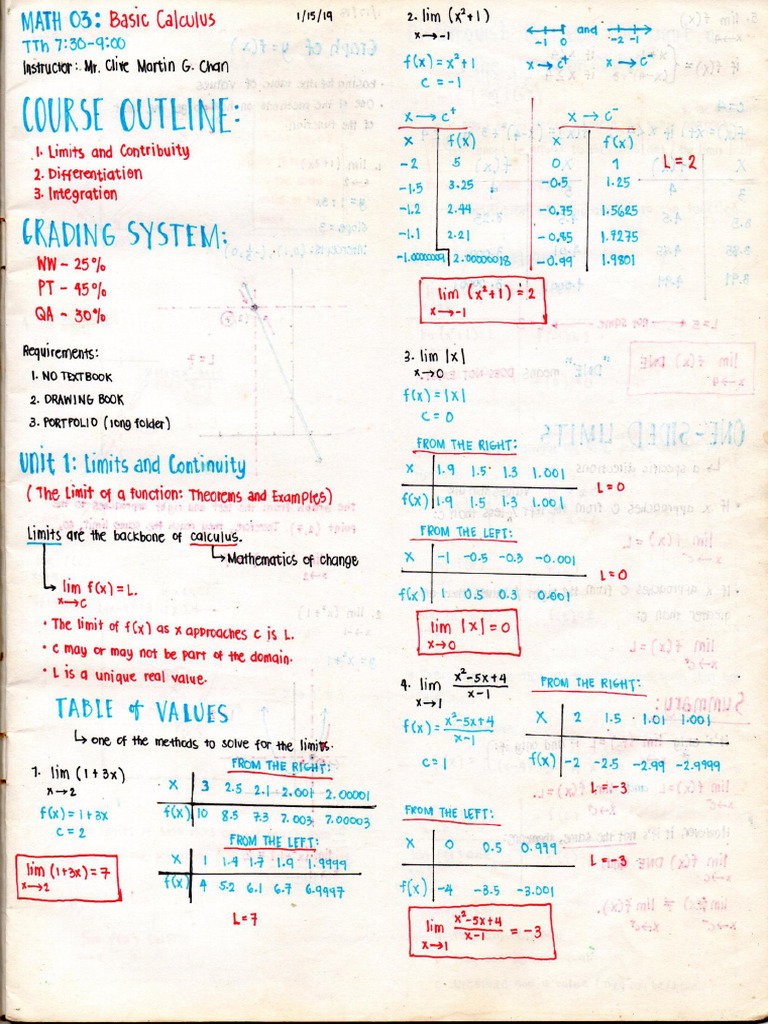 MATH 03: Basic Calculus
1/15/19
TTh 7:30-9:00
Instructor: Mr. Clive Martin G. Chan
COURSE OUTLINE:
1. Limits and Contribuity
2. Differentiation
3. Integration
GRADING SYSTEM:
WW - 25%
PT - 45%
QA - 30%
Requirements:
1. NO TEXTBOOK
2. DRAWING BOOK
3. PORTFOLIO (long folder)
Unit 1: Limits and Continuity
(The Limit of a function: Theorems and Examples)
Limits are the backbone of calculus.
↳ Mathematics of change
lim f(x) = L.
x→c
• The limit of f(x) as x approaches c is L.
• c may or may not be part of the domain.
• L is a unique real value.
TABLE of VALUES
↳ one of the methods to solve for the limits.
1. lim (1+3x)
x→2
f(x) = 1+3x
c = 2
lim (1+3x) = 7
x→2
FROM THE RIGHT:
x 3 2.5 2.1 2.001 2.00001
f(x) 10 8.5 7.3 7.003 7.00003
FROM THE LEFT:
x 1 1.4 1.7 1.9 1.9999
f(x) 4 5.2 6.1 6.7 6.9997
L=7
2. lim (x²+1)
x→-1
-1 0 and -2 -1
x→c⁺ x→c⁻
f(x) = x²+1
c = -1
x→c⁺ x→c⁻
x f(x) x f(x)
-2 5 0 1
-1.5 3.25 -0.5 1.25
-1.2 2.44 -0.75 1.5625
-1.1 2.21 -0.85 1.9275
2.00000018 -0.99 1.9801
L = 2
lim (x²+1) = 2
x→-1
3. lim |x|
x→0
f(x) = |x|
c = 0
FROM THE RIGHT:
x 1.9 1.5 1.3 1.001
f(x) 1.9 1.5 1.3 1.001
L = 0
FROM THE LEFT:
x -1 -0.5 -0.3 -0.001
f(x) 1 0.5 0.3 0.001
L = 0
lim |x| = 0
x→0
4. lim x²-5x+4 / x-1
x→1
f(x) = x²-5x+4 / x-1
c = 1
FROM THE RIGHT:
x 2 1.5 1.01 1.001
f(x) -2 -2.5 -2.99 -2.9999
L = -3
FROM THE LEFT:
x 0 0.5 0.999
f(x) -4 -3.5 -3.001
L = -3
lim x²-5x+4 / x-1 = -3
x→1